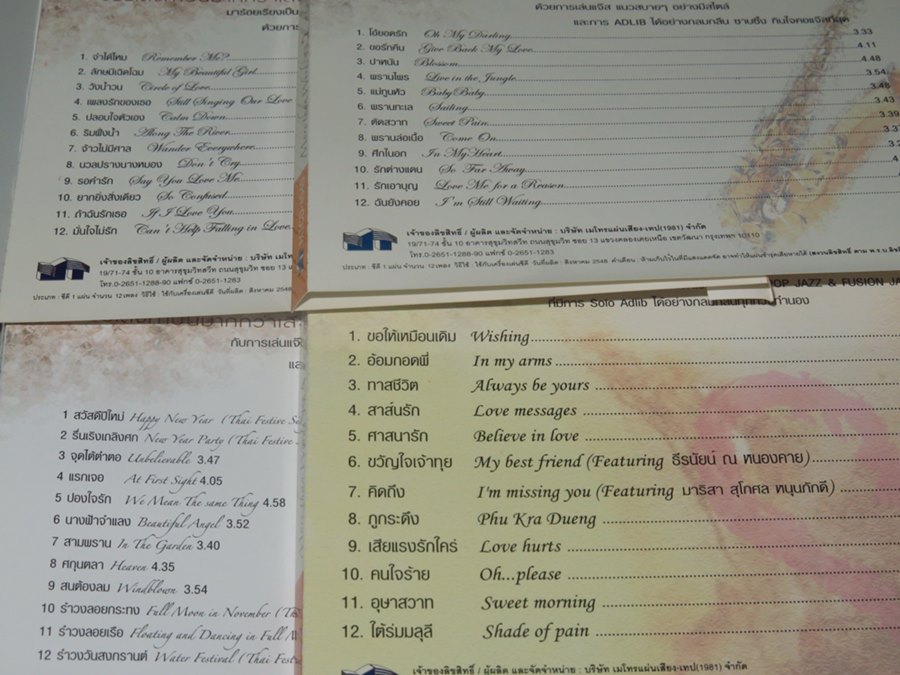 มาร้อยเรียงเป็น
ด้วยการ
1. จำได้ไหม Remember Me?
2. ลักษมีเฉิดโฉม My Beautiful Girl
3. วังน้ำวน Circle of Love
4. เพลงรักของเธอ Still Singing Our Love
5. ปลอบใจตัวเอง Calm Down
6. ริมฝั่งน้ำ Along The River
7. จ้าวไม่มีศาล Wander Everywhere
8. นวลปรางนางหมอง Don't Cry
9. รอคำรัก Say You Love Me
10. ยากยิ่งสิ่งเดียว So Confused
11. ถ้าฉันรักเธอ If I Love You
12. มั่นใจไม่รัก Can't Help Falling in Love
เจ้าของลิขสิทธิ์ / ผู้ผลิต และจัดจำหน่าย : บริษัท เมโทร
19/71-74 ชั้น 10 อาคารสุขุมวิทสวีท ถนนสุขุมวิท ซอย 13
โทร.0-2651-1288-90 แฟกซ์ 0-2651-1283
ประเภท : ซีดี 1 แผ่น จำนวน 12 เพลง วิธีใช้ : ใช้กับเครื่องเล่นซีดี วันที่ผลิต : สิงหาคม 2548
ด้วยการเล่นแจ๊ส แนวสบายๆ อย่างมีสไตล์
และการ ADLIB ได้อย่างกลมกลืน ซาบซึ้ง กินใจคอแจ๊สที่สุด
1. โอ้ยอดรัก Oh My Darling 3.33
2. ขอรักคืน Give Back My Love 4.11
3. ปาหนัน Blossom 4.48
4. พรานไพร Live in the Jungle 3.54
5. แม่ทูนหัว Baby Baby 3.48
6. พรานทะเล Sailing 3.43
7. ติดสวาท Sweet Pain 3.39
8. พรานล่อเนื้อ Come On
9. ศึกในอก In My Heart
10. รักต่างแดน So Far Away
11. รักเอาบุญ Love Me for a Reason
12. ฉันยังคอย I'm Still Waiting
เจ้าของลิขสิทธิ์ / ผู้ผลิต และจัดจำหน่าย : บริษัท เมโทรแผ่นเสียง-เทป(1981) จำกัด
19/71-74 ชั้น 10 อาคารสุขุมวิทสวีท ถนนสุขุมวิท ซอย 13 แขวงคลองเตยเหนือ เขตวัฒนา กรุงเทพฯ 10110
โทร.0-2651-1288-90 แฟกซ์ 0-2651-1283
ประเภท : ซีดี 1 แผ่น จำนวน 12 เพลง วิธีใช้ : ใช้กับเครื่องเล่นซีดี วันที่ผลิต : สิงหาคม 2548
กับการเล่นแจ๊ส
1 สวัสดีปีใหม่ Happy New Year (Thai Festive
2 รื่นเริงเถลิงศก New Year Party (Thai Festive
3 จุดใต้ตำตอ Unbelievable 3.47
4 แรกเจอ At First Sight 4.05
5 ปองใจรัก We Mean The same Thing 4.58
6 นางฟ้าจำแลง Beautiful Angel 3.52
7 สามพราน In The Garden 3.40
8 ศกุนตลา Heaven 4.35
9 สนต้องลม Windblown 3.54
10 รำวงลอยกระทง Full Moon in November
11 รำวงลอยเรือ Floating and Dancing in Full
12 รำวงวันสงกรานต์ Water Festival (Thai
OP JAZZ & FUSION JA
ที่มีการ Solo Adlib ได้อย่างกลมกลืนทุกท่วงทำนอง
1. ขอให้เหมือนเดิม Wishing
2. อ้อมกอดพี่ In my arms
3. ทาสชีวิต Always be yours
4. สาส์นรัก Love messages
5. ศาสนารัก Believe in love
6. ขวัญใจเจ้าทุย My best friend (Featuring ธีรนัยน์ ณ หนองคาย)
7. คิดถึง I'm missing you (Featuring มาริสา สุโกศล หนุนภักดี)
8. ภูกระดึง Phu Kra Dueng
9. เสียแรงรักใคร่ Love hurts
10. คนใจร้าย Oh...please
11. อุษาสวาท Sweet morning
12. ใต้ร่มมลุลี Shade of pain
เจ้าของลิขสิทธิ์ / ผู้ผลิต และจัดจำหน่าย : บริษัท เมโทรแผ่นเสียง-เทป(1981) จำกัด